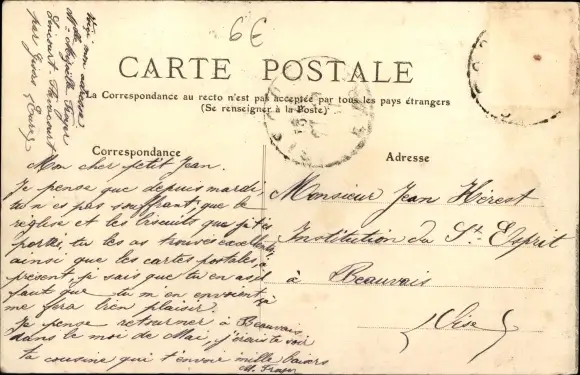 63
Voici mon adresse
Melle
par Gisors (Eure)
CARTE POSTALE
La Correspondance au recto n'est pas acceptée par tous les pays étrangers
(Se renseigner à la Poste)
Correspondance
Mon cher petit Jean.
Je pense que depuis mardi
tu n'es pas souffrant, que la
réglise et les biscuits que je t'ai
portés, tu les as trouvés excellents,
ainsi que les cartes postales, à
présent, je sais que tu en as, il
faut que tu m'en envoies, ça
me fera bien plaisir.
Je pense retourner à Beauvais
dans le mois de Mai, j'irais te voir
ta cousine qui t'envoie mille baisers
Adresse
Monsieur Jean Hérest
Institution du St. Esprit
à Beauvais
(Oise)